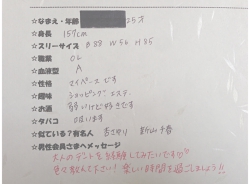 ☆なまえ・年齢 25才
☆身長 159cm
☆スリーサイズ B 88 W 56 H 85
☆職業 OL
☆血液型 A
☆性格 マイペースです
☆趣味 ショッピング、エステ
☆お酒 弱いけど好きです
☆タバコ 吸います
☆似ている?有名人 杏さゆり
☆男性会員さまへメッセージ
大人のデートを経験してみたいです♡♡
色々教えて下さい! 楽しい時間を過ごしましょう!!